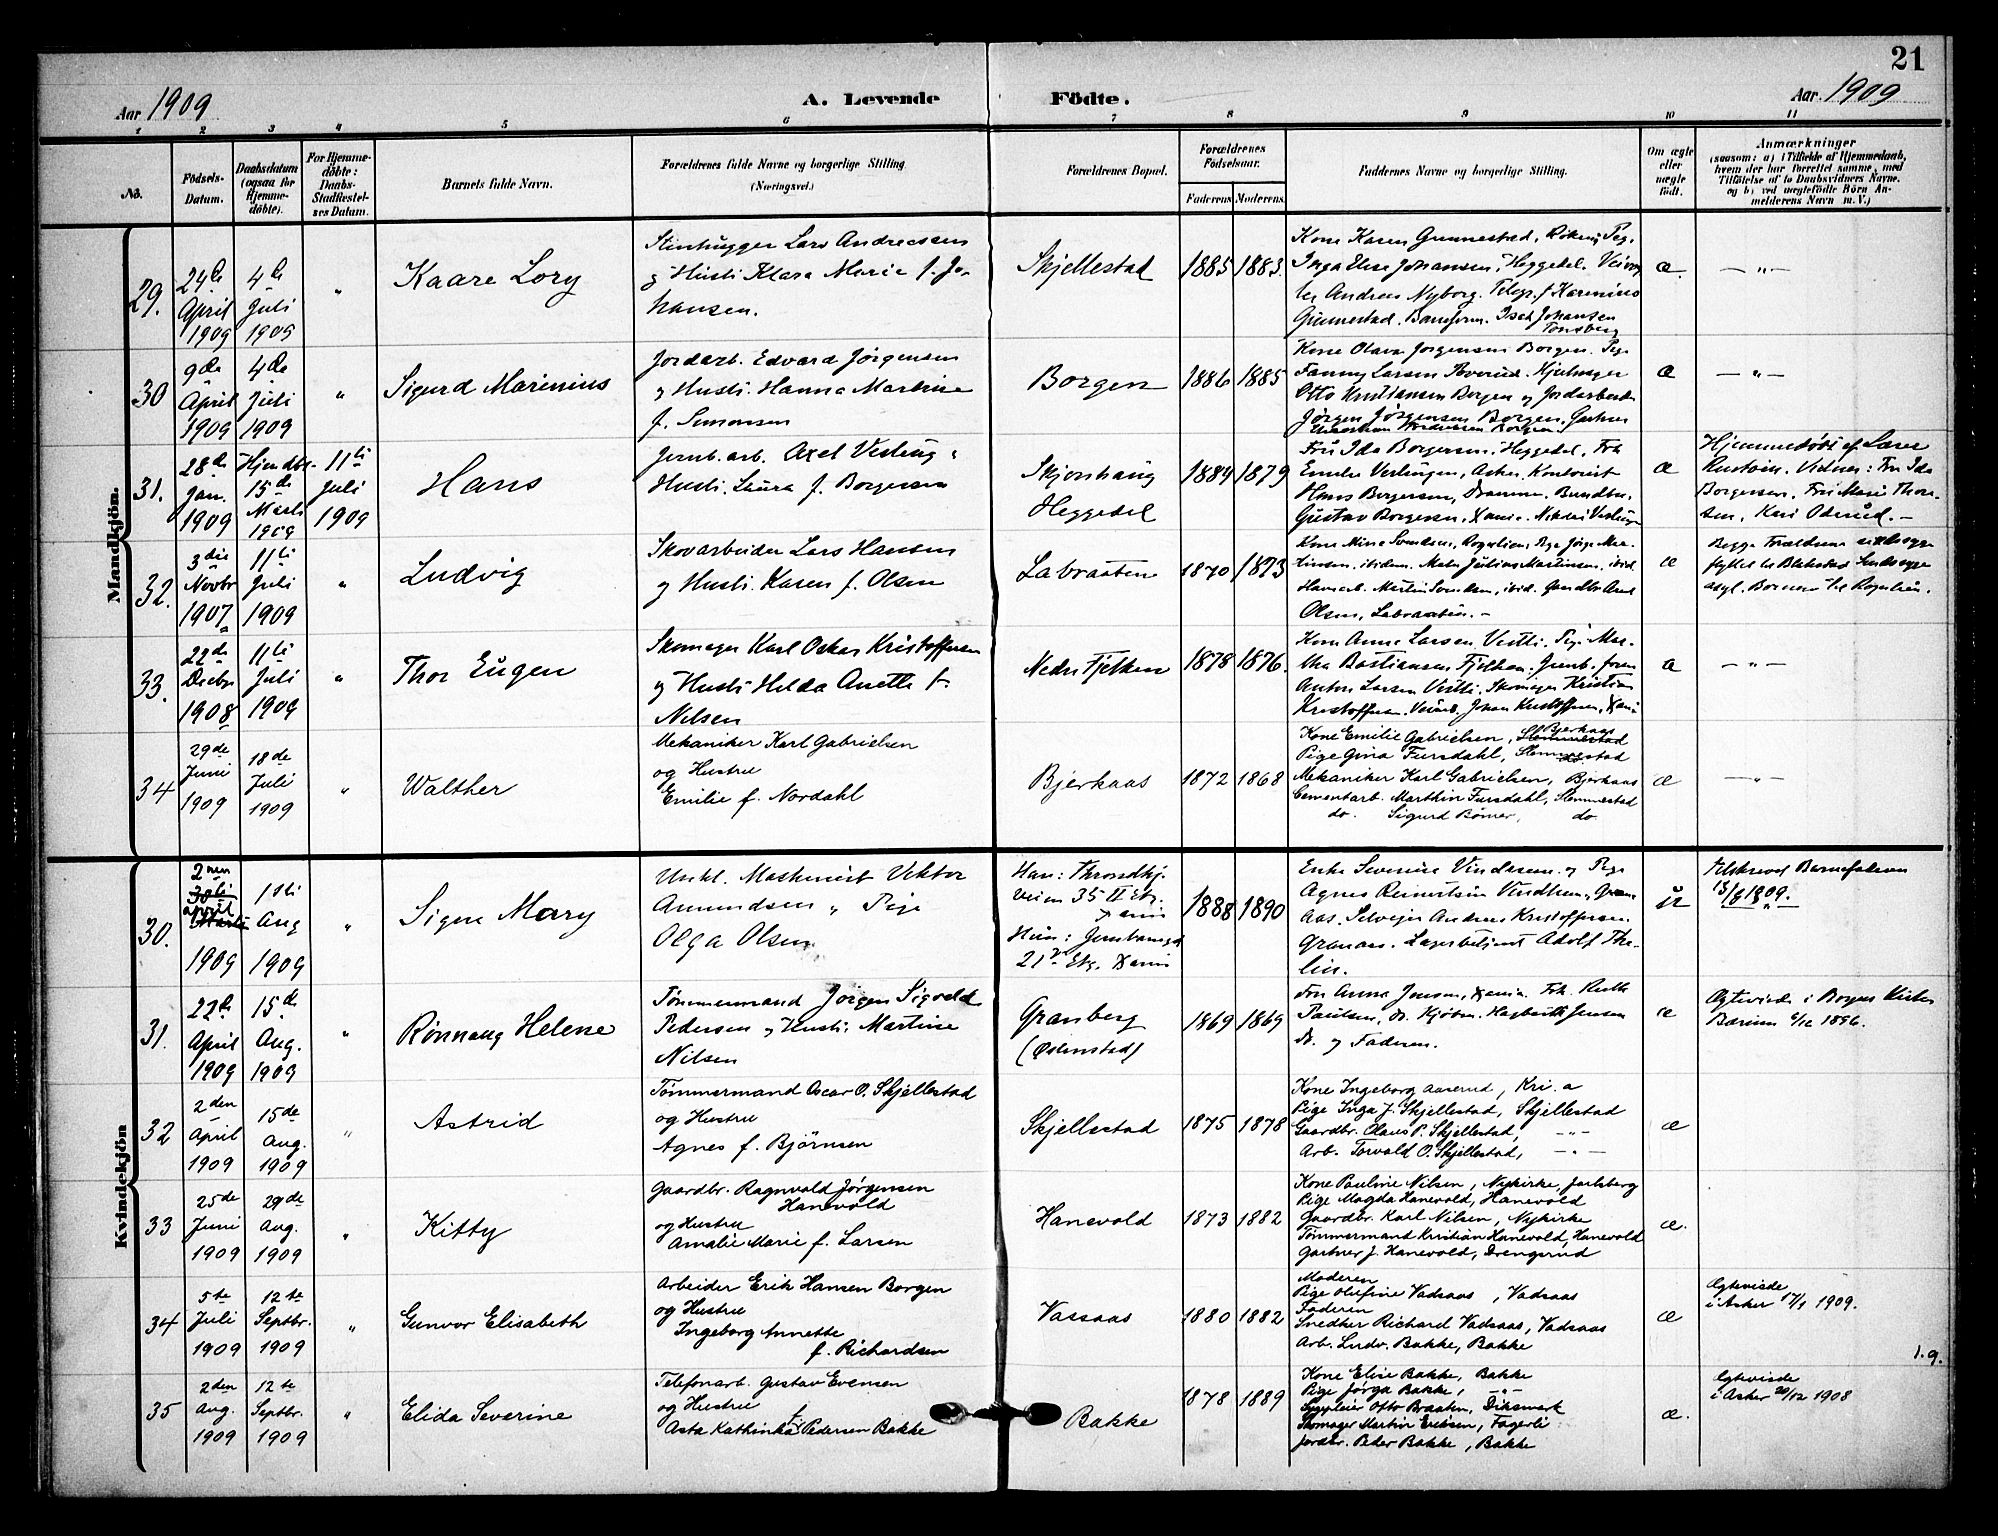 21
Aar 1909
A. Levende
Födte.
Aar 1909
1 2 3 4 5 6 7 8 9 10 11
No.
Födsels-Datum.
Daabsdatum (ogsaa for Hjemmedöbte).
For Hjemmedöbte: Daabs-Stadfæstelses Datum.
Barnets fulde Navn.
Forældrenes fulde Navne og borgerlige Stilling. (Næringsvei.)
Forældrenes Bopæl.
Forældrenes Födselsaar.
Faderens
Moderens
Faddernes Navne og borgerlige Stilling.
Om ægte eller uægte födt.
Anmærkninger
(saasom: a) i Tilfælde af Hjemmedaab,
hvem der har forrettet samme, med
Tilföielse af to Daabsvidners Navne.
og b) ved uægtefödte Börn Anmelderens Navn m. V.)
Mandkjön.
29.
24de April 1909
4de Juli 1909
"
Kaare Lory
Stenhugger Lars Andreassen
og Hustru Klara Marie f. Jo-
hansen.
Skjellestad
1885
1883.
Kone Karen Gunnestad, Røken, Pige
Inga Elise Johansen, Heggedal.
Andreas Nyborg.
Gunnestad. Johansen
Tønsberg
æ.
— „ —
30
9de April 1909
4de Juli 1909
"
Sigurd Marenius
Jordarb. Edvard Jørgensen
og Hustru Hanna Martine
f. Simonsen
Borgen
1886
1885
Kone Olava Jørgensen Borgen. Pige
Fanny Larsen
Otto Kristiansen Borgen og Jordarbeider
Jørgen Jørgensen Borgen,
æ
— „ —
31.
28de Jan. 1909
Hjemdbt. 15de Marts 1909
11te Juli 1909
Hans
Jernb.arb. Axel Vesteng
Hustru Laura f. Borgersen
Skjønhaug
Heggedal
1884
1879
Fru Ida Borgersen, Heggedal, Frk
Asker. Kontorist
Hans Borgersen, Drammen.
Gustav Borgersen, Xania.
æ
Hjemmedøbt af Lærer
Vidner: Fru Ida
Borgersen, Fru Marie Thor-
sen, Kari Oderud. —
32.
3die Novbr 1907
11te Juli 1909
"
Ludvig
Skovarbeider Lars Hansen
og Hustru Karen f. Olsen
Labraaten
1870
1873
Julius Martinsen, ibid.
ibid. Gaardbr. Axel
Olsen, Labraaten. —
æ
Begge Forældrene sindssyge
flyttet til Blakstad Sindssyge-
asyl.
33.
22de Decbr 1908
11te Juli 1909
"
Thor Eugen
Skomager Karl Oskar Kristoffersen
og Hustru Helda Anette f.
Nilsen
Nedre Fjelken
1878
1876.
Kone Anne Larsen Vestli. Pige Mar-
tha Bastiansen Fjelken.
Anton Larsen Vestli. Skomager Kristian
Kristoffersen. Johan Kristoffersen, Xania
æ
— „ —
34
29de Juni 1909
18de Juli 1909
"
Walther
Mekaniker Karl Gabrielsen
og Hustru
Emilie f. Nordahl
Bjerkaas
1872
1868
Kone Emilie Gabrielsen, Bjerkaas
Pige Gina Fursdahl, Slemmestad
Mekaniker Karl Gabrielsen, Bjerkaas
Cementarb. Marthin Fursdahl, Slemmestad
do. Sigurd Bömer, do.
æ
— „ —
Kvindekjön
30.
2nen april 1909
1ste Aug 1909
"
Signe Mary
Unkl. Maskinist Viktor
Amundsen og Pige
Olga Olsen
Han: Throndhj.
veien 35 II Etg.
Xania
Hun: Jernbanegd
21 Etg. Xania
1888
1890
Enke Severine Vindhsen og Pige
Agnes
Selveier Andreas Kristoffersen.
Granaas. Lagerbetjent Adolf The-
lin.
u
Tilskrevet Barnefaderen
13/8 1909.
31.
22de April 1909
15de Aug. 1909
"
Rønnaug Helene
Tømmermand Jørgen Sigvald
Pedersen og Hustru Martine
Nilsen
Granberg
(Østenstad)
1869
1869
Fru Anna Jensen, Xania. Frk. Ruth
Paulsen, do. Jensen
do. og Faderen.
æ
Ægteviede i Kirke
Bærum 1896.
32
2den April 1909
15de Aug. 1909
"
Astrid
Tømmermand Oscar O. Skjellestad
og Hustru
Agnes f. Björnsen
Skjellestad
1875
1878
Kone Ingeborg Aaserud, Kri.a
Pige Inga J. Skjellestad, Skjellestad
Gaardbr. Olaus P. Skjellestad, — „ —
Arb. Torvald O. Skjellestad, — „ —
æ
33
25de Juni 1909
29de Aug. 1909
"
Kitty
Gaardbr. Ragnvald Jörgensen
Hanevold
og Hustru
Amalie Marie f. Larsen
Hanevold
1873
1882
Kone Pauline Nilsen, Nykirke, Jarlsberg
Pige Magda Hanevold, Hanevold
Gaardbr. Karl Nilsen, Nykirke
Tömmermand Kristian Hanevold, Hanevold
Gartner J. Hanevold, Drengsrud
æ.
34
5te Juli 1909
12te Septbr. 1909
"
Gunvor Elisabeth
Arbeider Erik Hansen Borgen
og Hustru
Ingeborg Annette
f. Richardsen
Vassaas
1880
1882
Moderen
Pige Olufine Vadsaas, Vadsaas
Faderen
Snedker Richard Vadsaas, Vadsaas
Arb. Ludv. Bakke, Bakke
æ
Ægteviede
i Asker 17/1 1909.
1.9.
35
2den Aug. 1909
12te Septbr. 1909
"
Elida Severine
Telefonarb. Gustav Evensen
og Hustru
Asta Kathinka f. Pedersen Bakke
Bakke
1878
1889
Kone Elise Bakke, Bakke
Pige Jörga Bakke, — „ —
Otto Braaten, Dikemark
Skomager Martin Eriksen, Fagerli
Jordbr. Peder Bakke, Bakke
æ.
Ægteviede
i Asker 20/12 1908